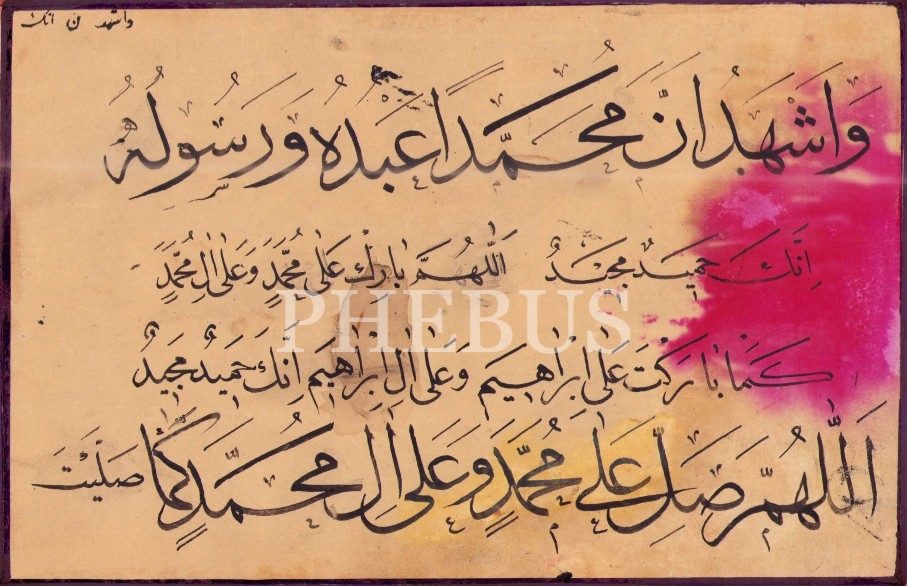 واشهد ن انك
وَاَشْهَدُ اَنَّ مُحَمَّدًا عَبْدُهُ وَرَسُولُهُ
اِنَّكَ حَمِيدٌ مَجِيدٌ اَللّٰهُمَّ بَارِكْ عَلٰى مُحَمَّدٍ وَعَلٰى اٰلِ مُحَمَّدٍ
PHEBUS
كَمَا بَارَكْتَ عَلٰى اِبْرٰاهِيمَ وَعَلٰى اٰلِ اِبْرٰاهِيمَ اِنَّكَ حَمِيدٌ مَجِيدٌ
اَللّٰهُمَّ صَلِّ عَلٰى مُحَمَّدٍ وَعَلٰى اٰلِ مُحَمَّدٍ كَمَا صَلَّيْتَ